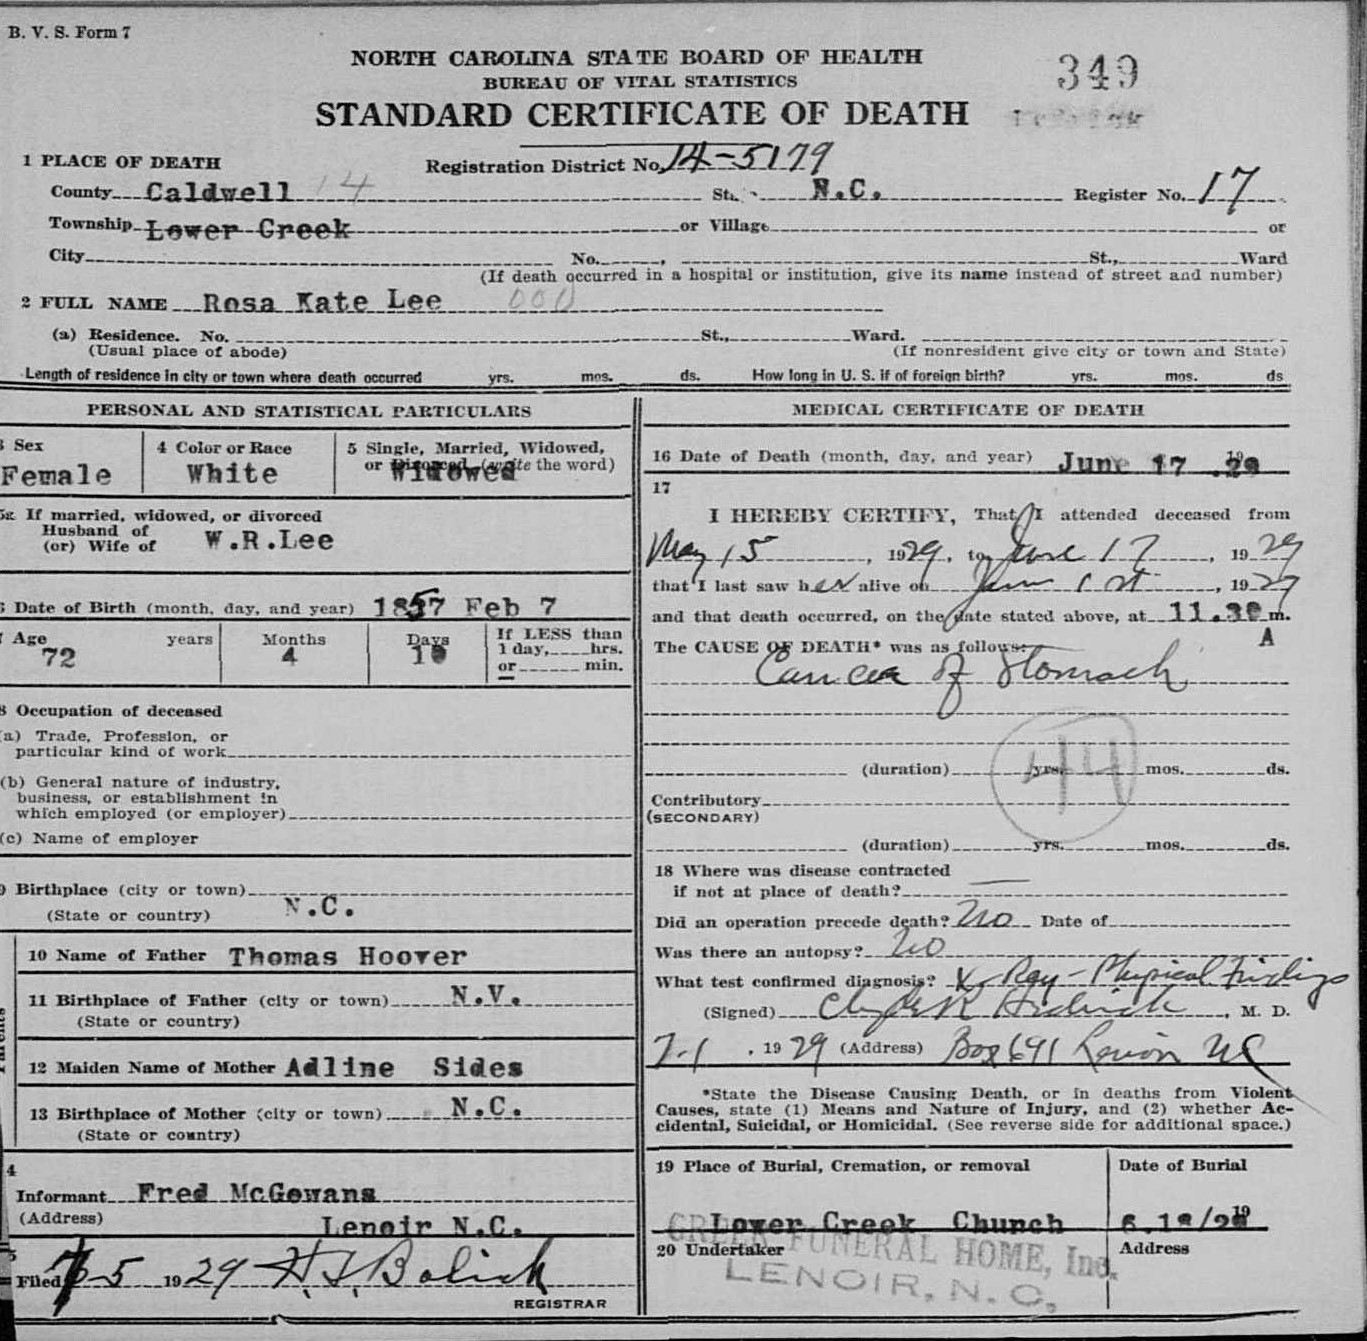 B. V. S. Form 7
NORTH CAROLINA STATE BOARD OF HEALTH
BUREAU OF VITAL STATISTICS
349
STANDARD CERTIFICATE OF DEATH
1 PLACE OF DEATH
Registration District No. 14-5179
County Caldwell 14 St. N.C. Register No. 17
Township Lower Creek or Village or
City No. , St., Ward
(If death occurred in a hospital or institution, give its name instead of street and number)
2 FULL NAME Rosa Kate Lee 000
(a) Residence. No. St., Ward.
(Usual place of abode) (If nonresident give city or town and State)
Length of residence in city or town where death occurred yrs. mos. ds. How long in U. S. if of foreign birth? yrs. mos. ds
PERSONAL AND STATISTICAL PARTICULARS
3 Sex 4 Color or Race 5 Single, Married, Widowed,
or Divorced (write the word)
Female White Widowed
5a If married, widowed, or divorced
Husband of
(or) Wife of W.R.Lee
6 Date of Birth (month, day, and year) 1857 Feb 7
7 Age years Months Days If LESS than
1 day, hrs.
or min.
72 4 10
8 Occupation of deceased
(a) Trade, Profession, or
particular kind of work
(b) General nature of industry,
business, or establishment in
which employed (or employer)
(c) Name of employer
9 Birthplace (city or town)
(State or country) N.C.
Parents
10 Name of Father Thomas Hoover
11 Birthplace of Father (city or town) N.V.
(State or country)
12 Maiden Name of Mother Adline Sides
13 Birthplace of Mother (city or town) N.C.
(State or country)
4
Informant Fred McGowans
(Address) Lenoir N.C.
5
Filed 7 5 1929 H. S. Bolick
REGISTRAR
MEDICAL CERTIFICATE OF DEATH
16 Date of Death (month, day, and year) June 17 1929
17
I HEREBY CERTIFY, That I attended deceased from
May 15, 1929, to June 17, 1929
that I last saw her alive on June 1st, 1929
and that death occurred, on the date stated above, at 11.30 m.
A
The CAUSE OF DEATH* was as follows:
Cancer of Stomach
(duration) yrs. mos. ds.
44
Contributory
(SECONDARY)
(duration) yrs. mos. ds.
18 Where was disease contracted
if not at place of death?
Did an operation precede death? No Date of
Was there an autopsy? No
What test confirmed diagnosis? X Ray - Physical Findings
(Signed) Clyde R Hedrick, M. D.
7-1, 1929 (Address) Box 691 Lenoir NC
*State the Disease Causing Death, or in deaths from Violent
Causes, state (1) Means and Nature of Injury, and (2) whether Ac-
cidental, Suicidal, or Homicidal. (See reverse side for additional space.)
19 Place of Burial, Cremation, or removal Date of Burial
Lower Creek Chunch 6 18/29 19
20 Undertaker Address
GREER FUNERAL HOME, Inc.
LENOIR, N. C.